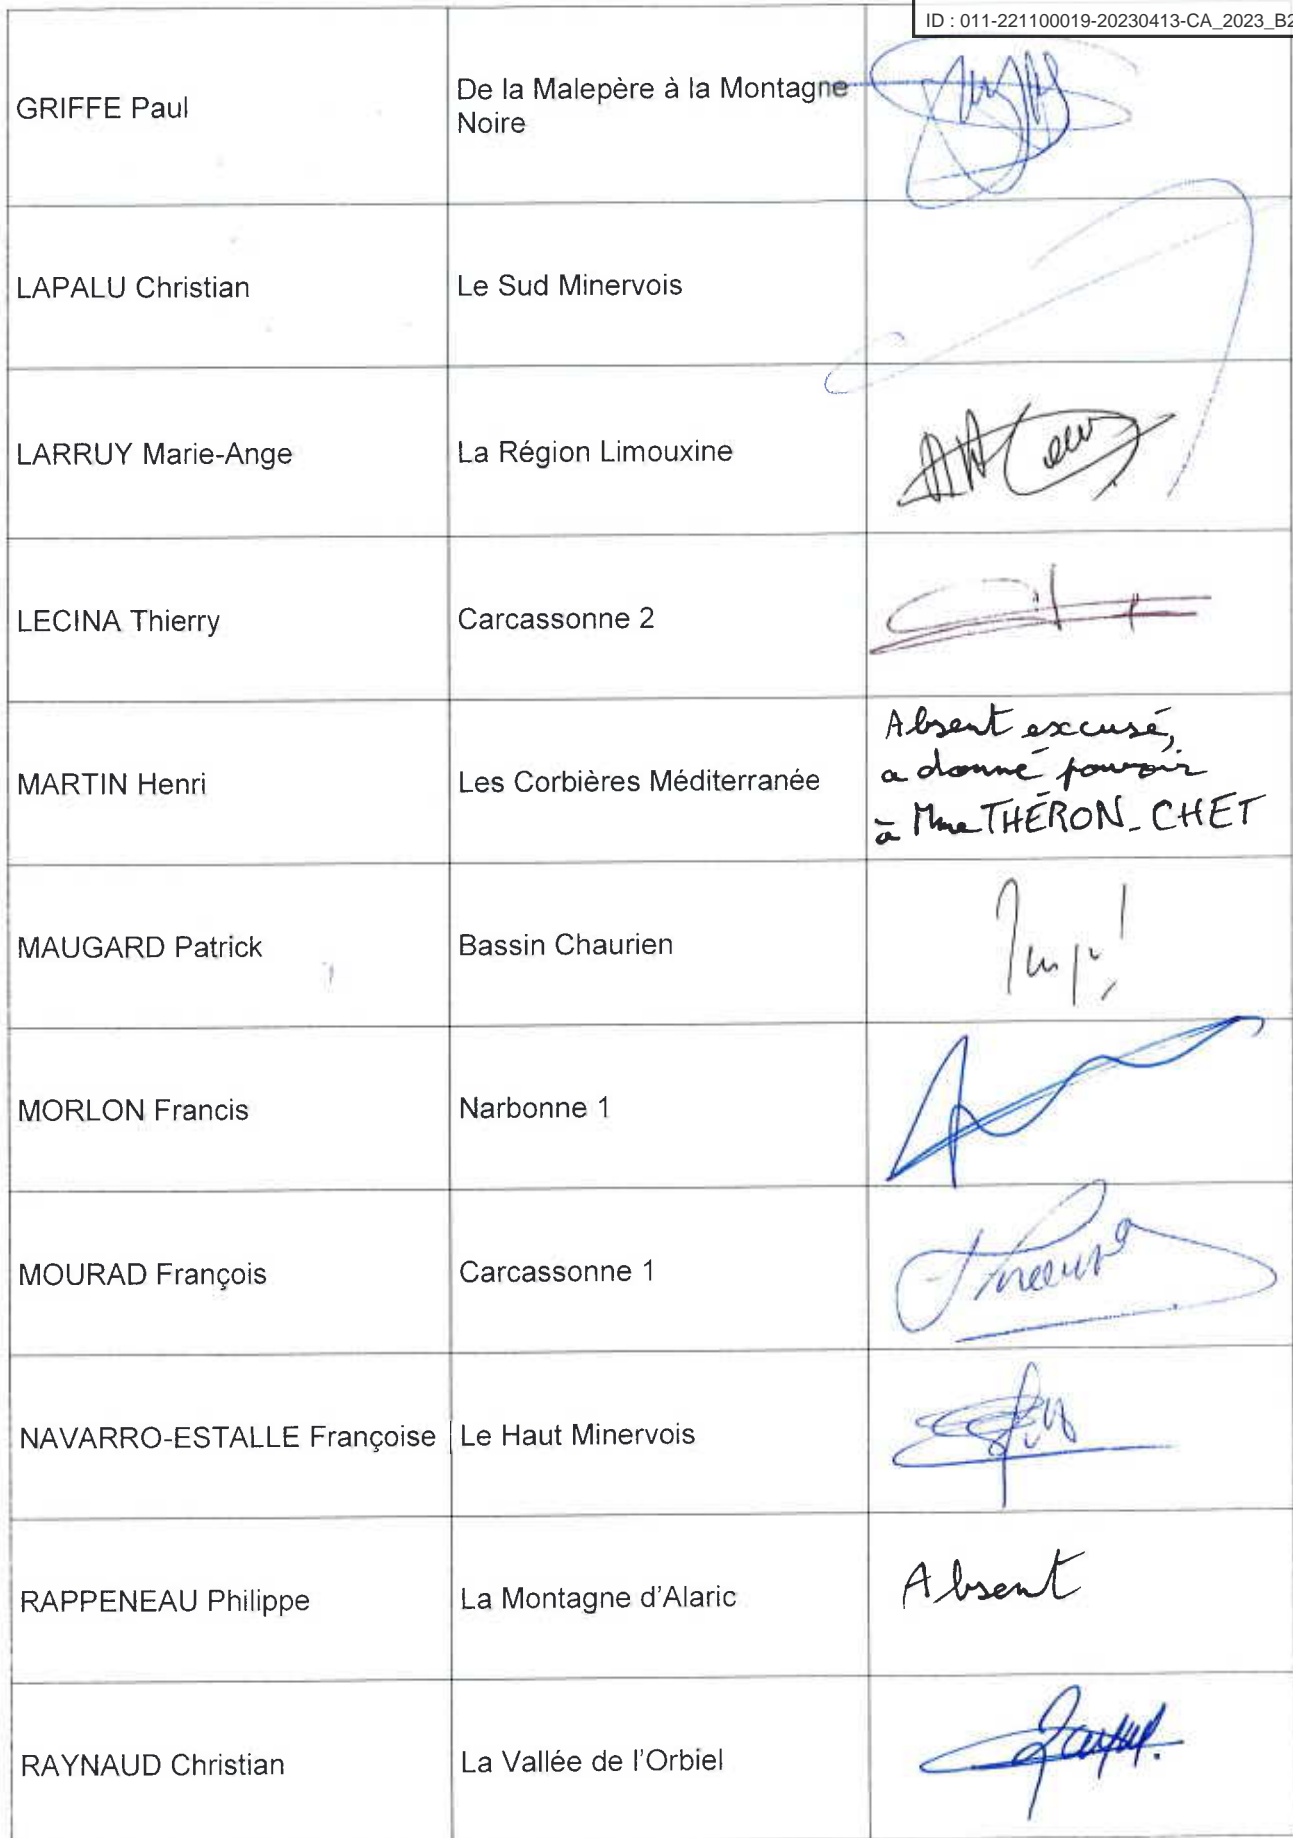 ID : 011-221100019-20230413-CA_2023_B2
GRIFFE Paul
De la Malepère à la Montagne
Noire
LAPALU Christian
Le Sud Minervois
LARRUY Marie-Ange
La Région Limouxine
LECINA Thierry
Carcassonne 2
MARTIN Henri
Les Corbières Méditerranée
Absent excusé,
a donné pouvoir
à Mme THÉRON-CHET
MAUGARD Patrick
Bassin Chaurien
MORLON Francis
Narbonne 1
MOURAD François
Carcassonne 1
NAVARRO-ESTALLE Françoise
Le Haut Minervois
RAPPENEAU Philippe
La Montagne d'Alaric
Absent
RAYNAUD Christian
La Vallée de l'Orbiel